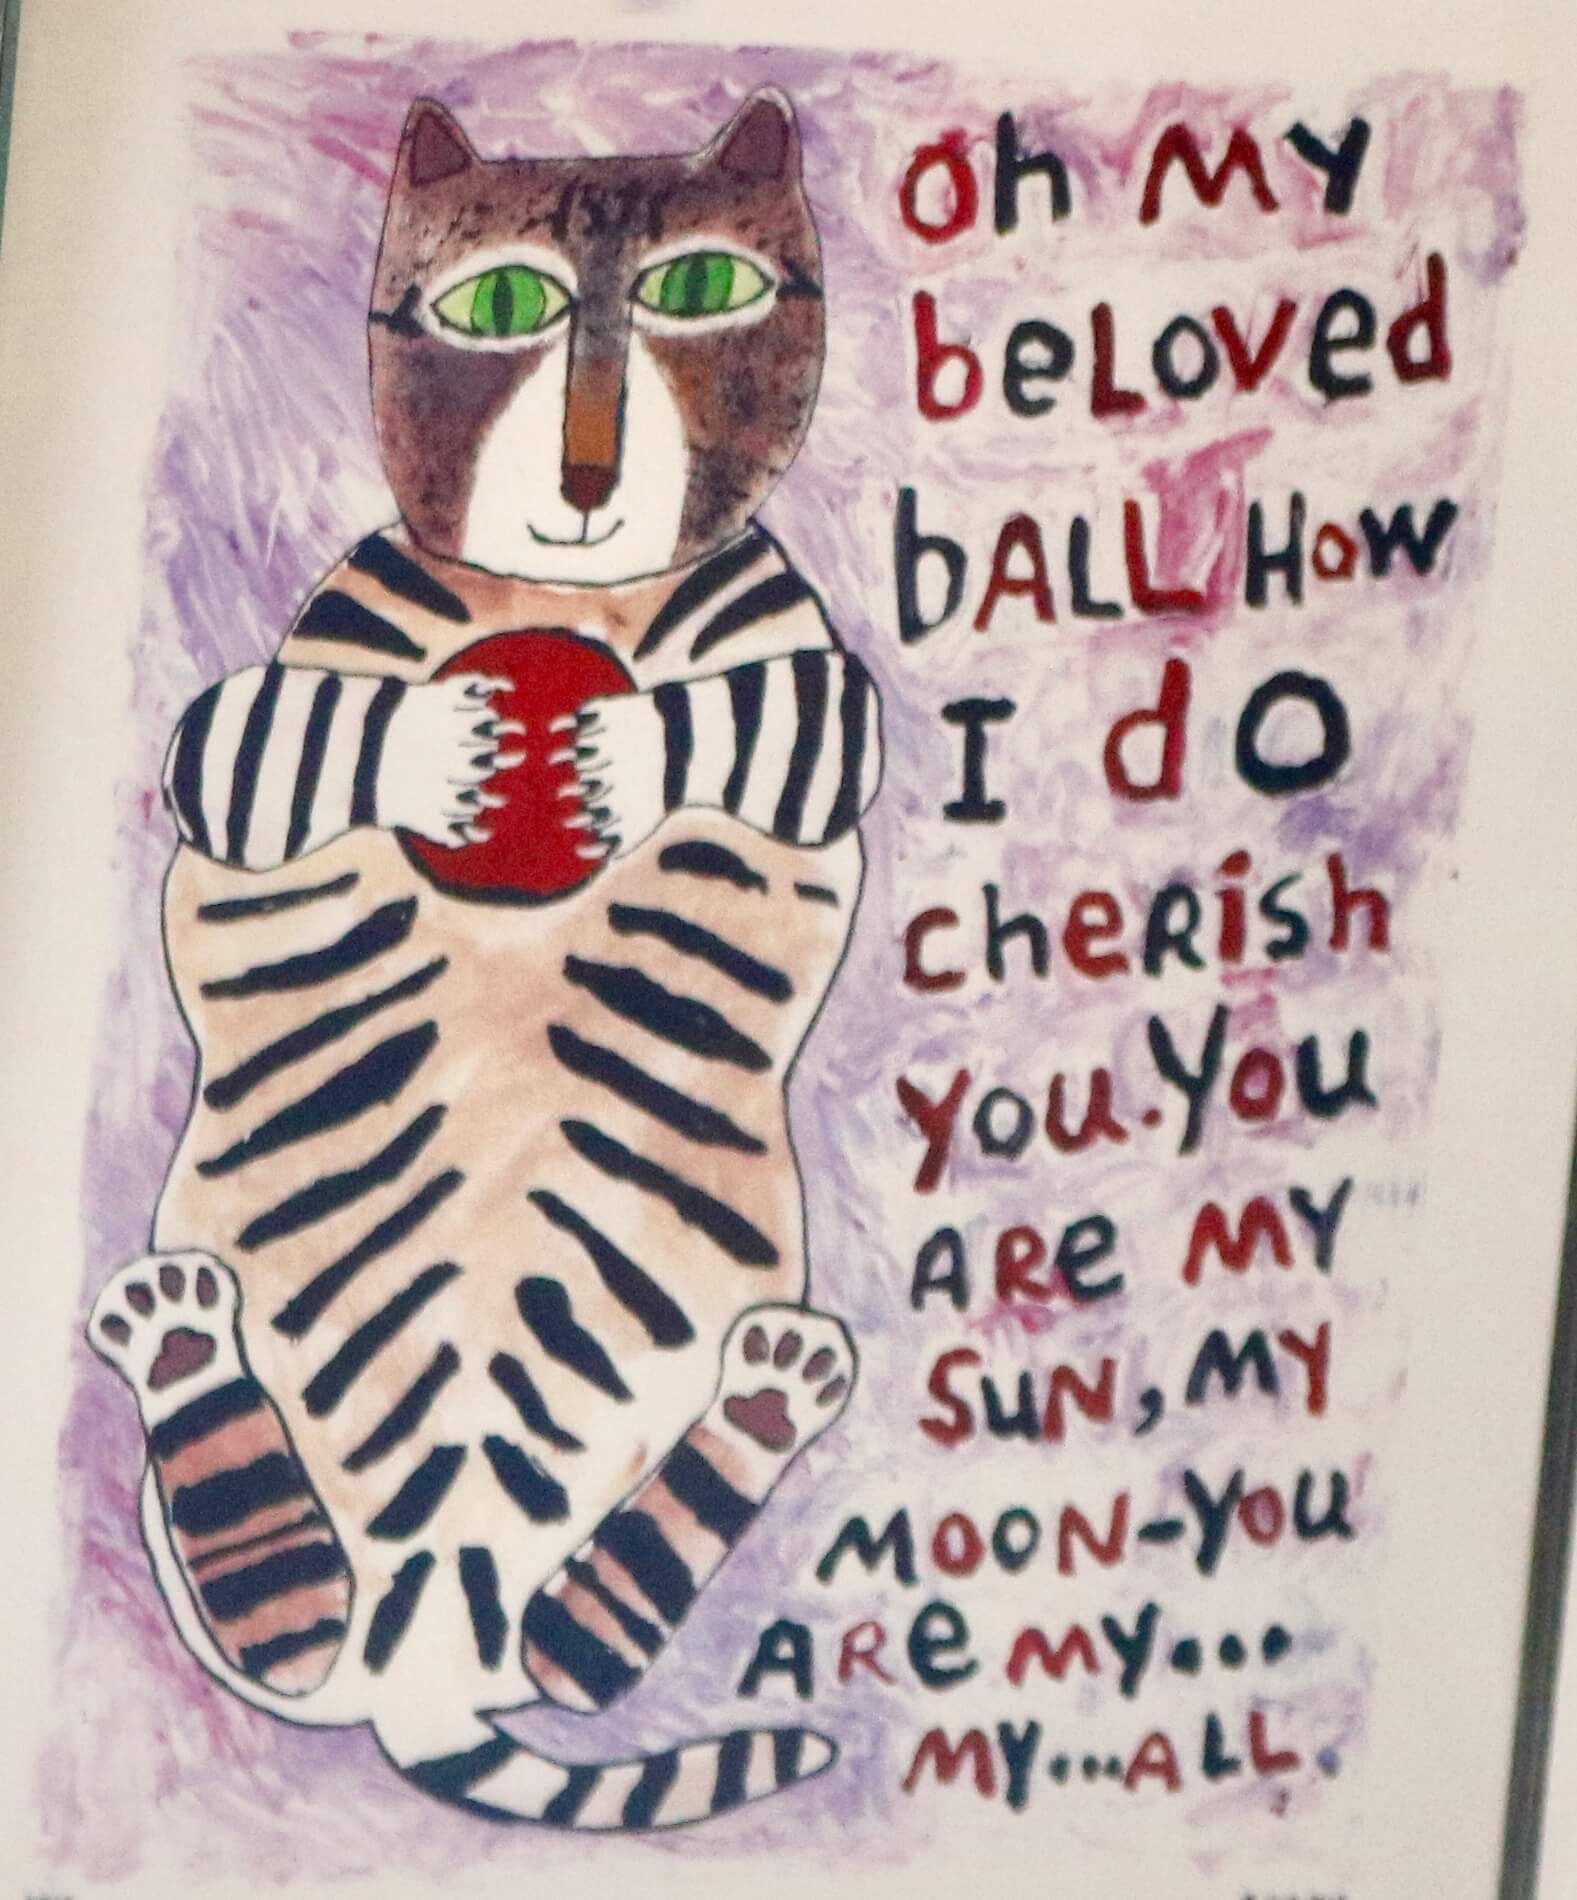 oh MY
beLoved
bALL How
I do
cheRish
you. You
ARe MY
SuN, MY
MOON-You
ARe MY...
MY...ALL.